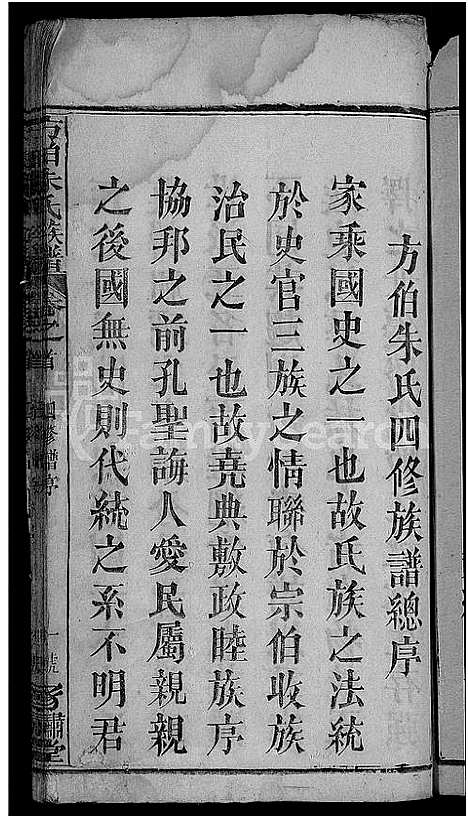 方伯朱氏四修族譜總序
家乘國史之一也故氏族之法統
於史官三族之情聯於宗伯收族
治民之一也故堯典敷政睦族序
協邦之前孔聖誨人愛民屬親親
之後國無史則代統之系不明君
方伯朱氏族譜 卷之首 四修譜序 一號
FamilySearch